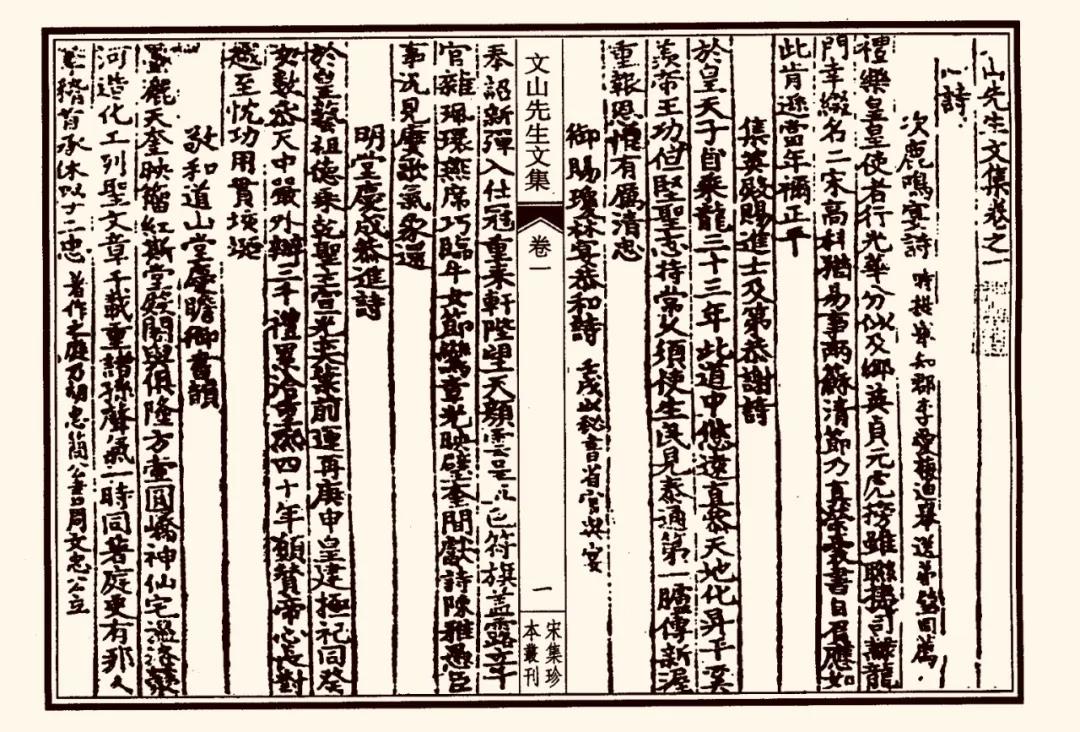 山先生文集卷之一
詩
次鹿鳴宴詩 時棋軒知郡李愛梅迪舉送弟同薦
禮樂皇皇使者行光華分似及鄉英貞元虎榜雖聯捷司隸龍
門幸綴名二宋高科猶易事兩蘇清節乃真榮囊書自負應如
此肯遜當年禰正平
集英殿賜進士及第恭謝詩
於皇天子自乘龍三十三年此道中悠遠直參天地化昇平奚
羨帝王功但堅聖志持常久須使生民見泰通第一臚傳新渥
重報恩惟有厲清忠
御賜瓊林宴恭和詩 壬戌以秘書省官與宴
文山先生文集
卷一
一
宋集珍本叢刊
奉詔新彈入仕冠重來軒陛望天顏雲呈五色符旗蓋露立千
官雜珮環燕席巧臨牛女節鸞章光映璧奎間獻詩陳雅愚臣
事況見賡歌氣象還
明堂慶成恭進詩
於皇藝祖德乘乾聖主宣光奕葉前運再庚申皇建極祀同癸
數恭天中嚴外辦三千禮累洽重熙四十年願贊帝心長對
越至忱功用貫垓埏
敬和道山堂慶瞻御書韻
麗天奎映籀紅斯堂殿閣與俱隆方壺圓嶠神仙宅
河造化工列聖文章千載重諸孫聲氣一時同著庭更有邦人
稽首承休以二忠 著作之庭乃胡忠簡公書周文忠公立